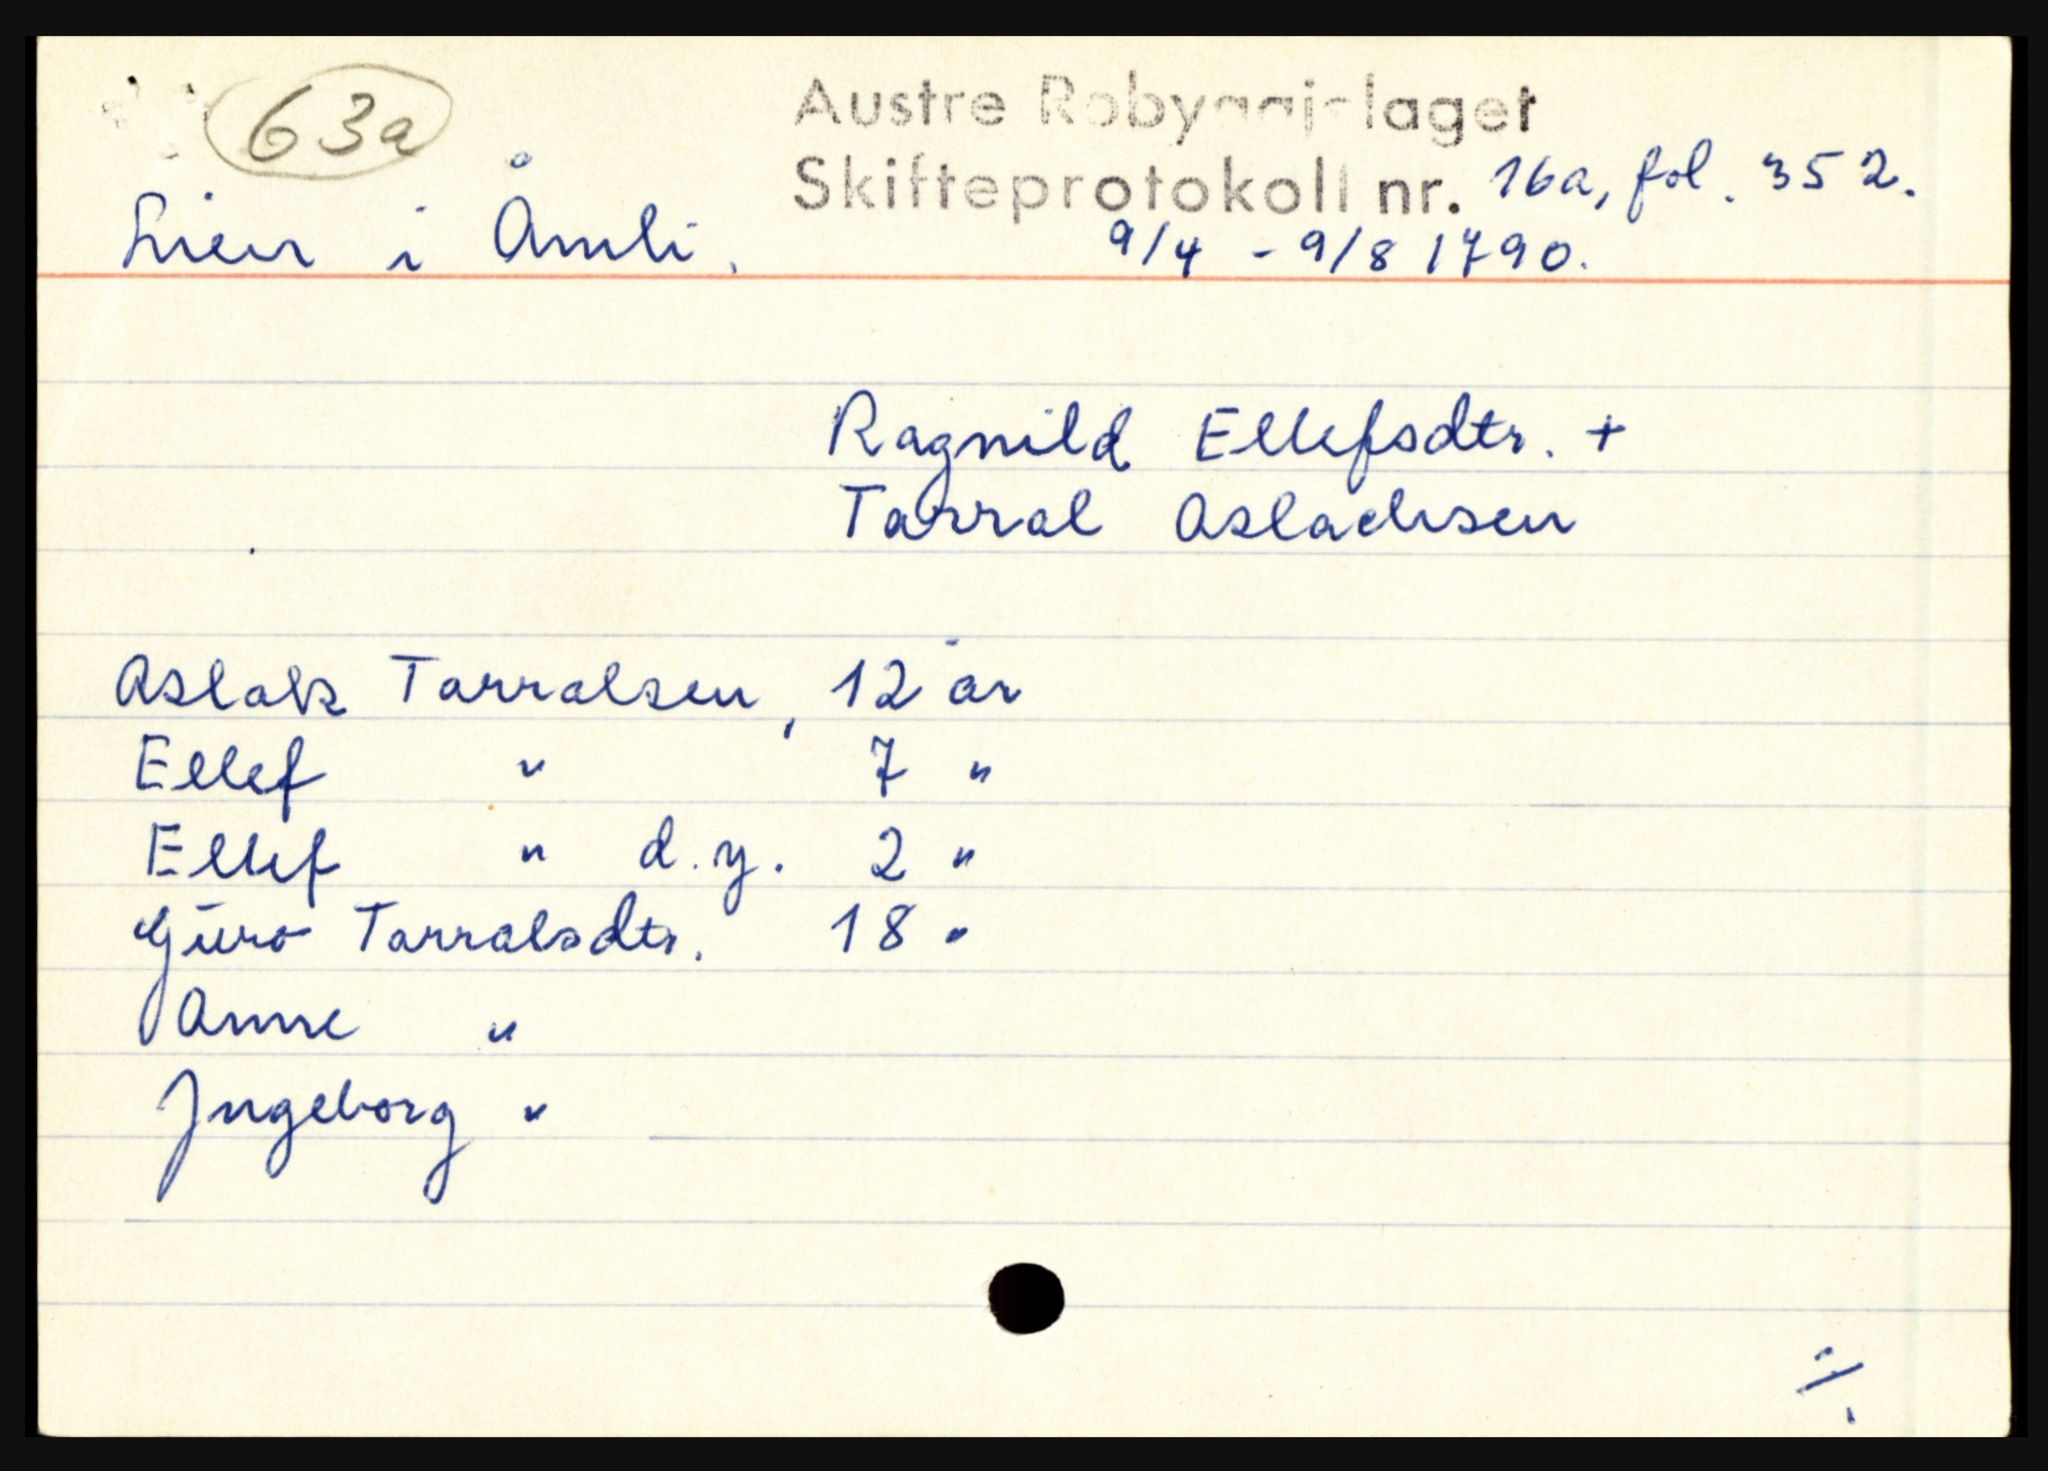 63a
Austre Robyggjelaget
Skifteprotokoll nr. 16a, fol. 352.
Lien i Åmli. 9/4 - 9/8 1790.
Ragnild Ellefsdtr. +
Tarral Aslachsen
Aslak Tarralsen, 12 år
Ellef " 7 "
Ellef " d.y. 2 "
Gúro Tarralsdtr. 18 "
Anne "
Ingeborg "